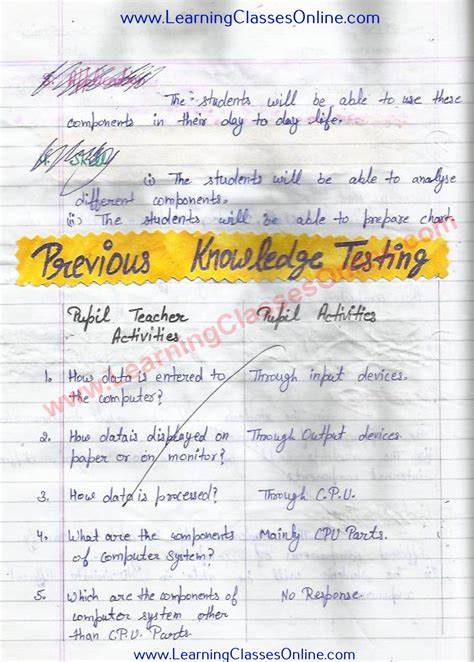 www.LearningClassesOnline.com
The students will be able to use these
components in their day to day life.
(i) The students will be able to analyse
different components.
ii) The students will be able to prepare chart.
Previous Knowledge Testing
Pupil Teacher Activities
Pupil Activities
1. How data is entered to the computer?
Through input devices.
2. How data is displayed on paper or on monitor?
Through Output devices.
3. How data is processed?
Through C.P.U.
4. What are the components of computer system?
Mainly CPU Parts.
5. Which are the components of computer system other than C.P.U. Parts.
No Response.
www.LearningClassesOnline.com
www.LearningClassesOnline.com